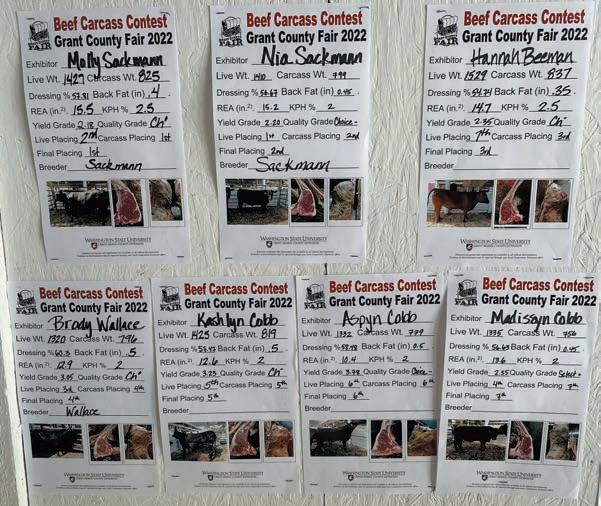 Beef Carcass Contest
Grant County Fair 2022
FAIR
Exhibitor Molly Sackmann
Live Wt. 1427 Carcass Wt. 825
Dressing % 57.81 Back Fat (in) .4
REA (in.²) 15.5 KPH % 2.5
Yield Grade 2.18 Quality Grade Ch⁺
Live Placing 2nd Carcass Placing 1st
Final Placing 1st
Breeder Sackmann
WASHINGTON STATE UNIVERSITY
Beef Carcass Contest
Grant County Fair 2022
FAIR
Exhibitor Nia Sackmann
Live Wt. 1410 Carcass Wt. 799
Dressing % 56.67 Back Fat (in) 0.45
REA (in.²) 15.2 KPH % 2
Yield Grade 2.20 Quality Grade Choice-
Live Placing 1st Carcass Placing 2nd
Final Placing 2nd
Breeder Sackmann
WASHINGTON STATE UNIVERSITY
Beef Carcass Contest
Grant County Fair 2022
FAIR
Exhibitor Hannah Beeman
Live Wt. 1529 Carcass Wt. 837
Dressing % 54.74 Back Fat (in) .35
REA (in.²) 14.7 KPH % 2.5
Yield Grade 2.35 Quality Grade Ch-
Live Placing 7th Carcass Placing 3rd
Final Placing 3rd
Breeder
WASHINGTON STATE UNIVERSITY
Beef Carcass Contest
Grant County Fair 2022
FAIR
Exhibitor Brody Wallace
Live Wt. 1320 Carcass Wt. 796
Dressing % 60.3 Back Fat (in) .5
REA (in.²) 12.9 KPH % 2
Yield Grade 3.05 Quality Grade Ch⁺
Live Placing 3rd Carcass Placing 4th
Final Placing 4th
Breeder Wallace
WASHINGTON STATE UNIVERSITY
Beef Carcass Contest
Grant County Fair 2022
FAIR
Exhibitor Kashlyn Cobb
Live Wt. 1425 Carcass Wt. 819
Dressing % 57.47 Back Fat (in) .5
REA (in.²) KPH % 2
Yield Grade 3.23 Quality Grade
Live Placing 5th Carcass Placing 5th
Final Placing 5th
Breeder
WASHINGTON STATE UNIVERSITY
Beef Carcass Contest
Grant County Fair 2022
FAIR
Exhibitor Aspyn Cobb
Live Wt. 1332 Carcass Wt. 779
Dressing % 58.48 Back Fat (in) 0.5
REA (in.²) 10.4 KPH % 2
Yield Grade 3.78 Quality Grade Choice-
Live Placing 6th Carcass Placing 6th
Final Placing 6th
Breeder
WASHINGTON STATE UNIVERSITY
Beef Carcass Contest
Grant County Fair 2022
FAIR
Exhibitor Madissyn Cobb
Live Wt. 1335 Carcass Wt. 756
Dressing % 56.63 Back Fat (in) 0.45
REA (in.²) 13.6 KPH % 2
Yield Grade 2.55 Quality Grade Select+
Live Placing 4th Carcass Placing 7th
Final Placing 7th
Breeder
WASHINGTON STATE UNIVERSITY